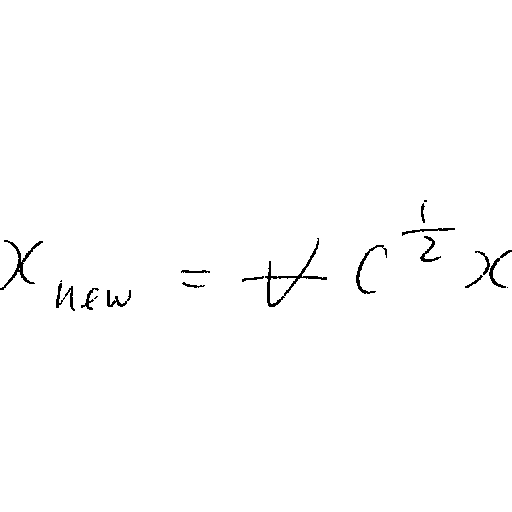 x_{new} = \forall C^{\frac{1}{2}} x